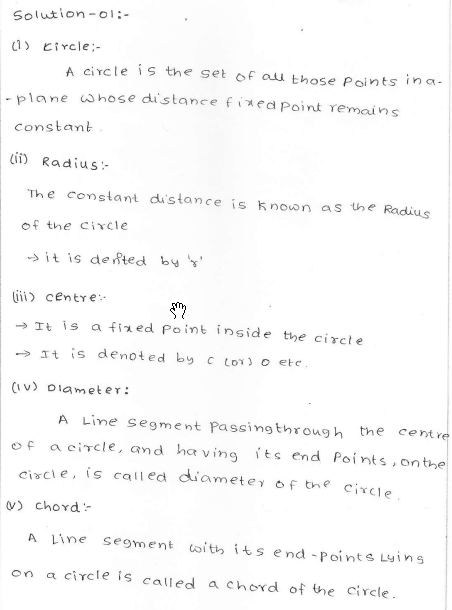 Solution-01:-
(i) Circle:-
A circle is the set of all those points in a-
-plane whose distance fixed point remains
constant.
(ii) Radius:-
The constant distance is known as the Radius
of the circle
→ it is denfted by 'r'
(iii) centre:-
→ It is a fixed point inside the circle
→ It is denoted by c (or) o etc.
(iv) Diameter:
A Line segment passingthrough the centre
of a circle, and having its end points, on the
circle, is called diameter of the circle.
(v) chord:-
A Line segment with its end-points Lying
on a circle is called a chord of the circle.